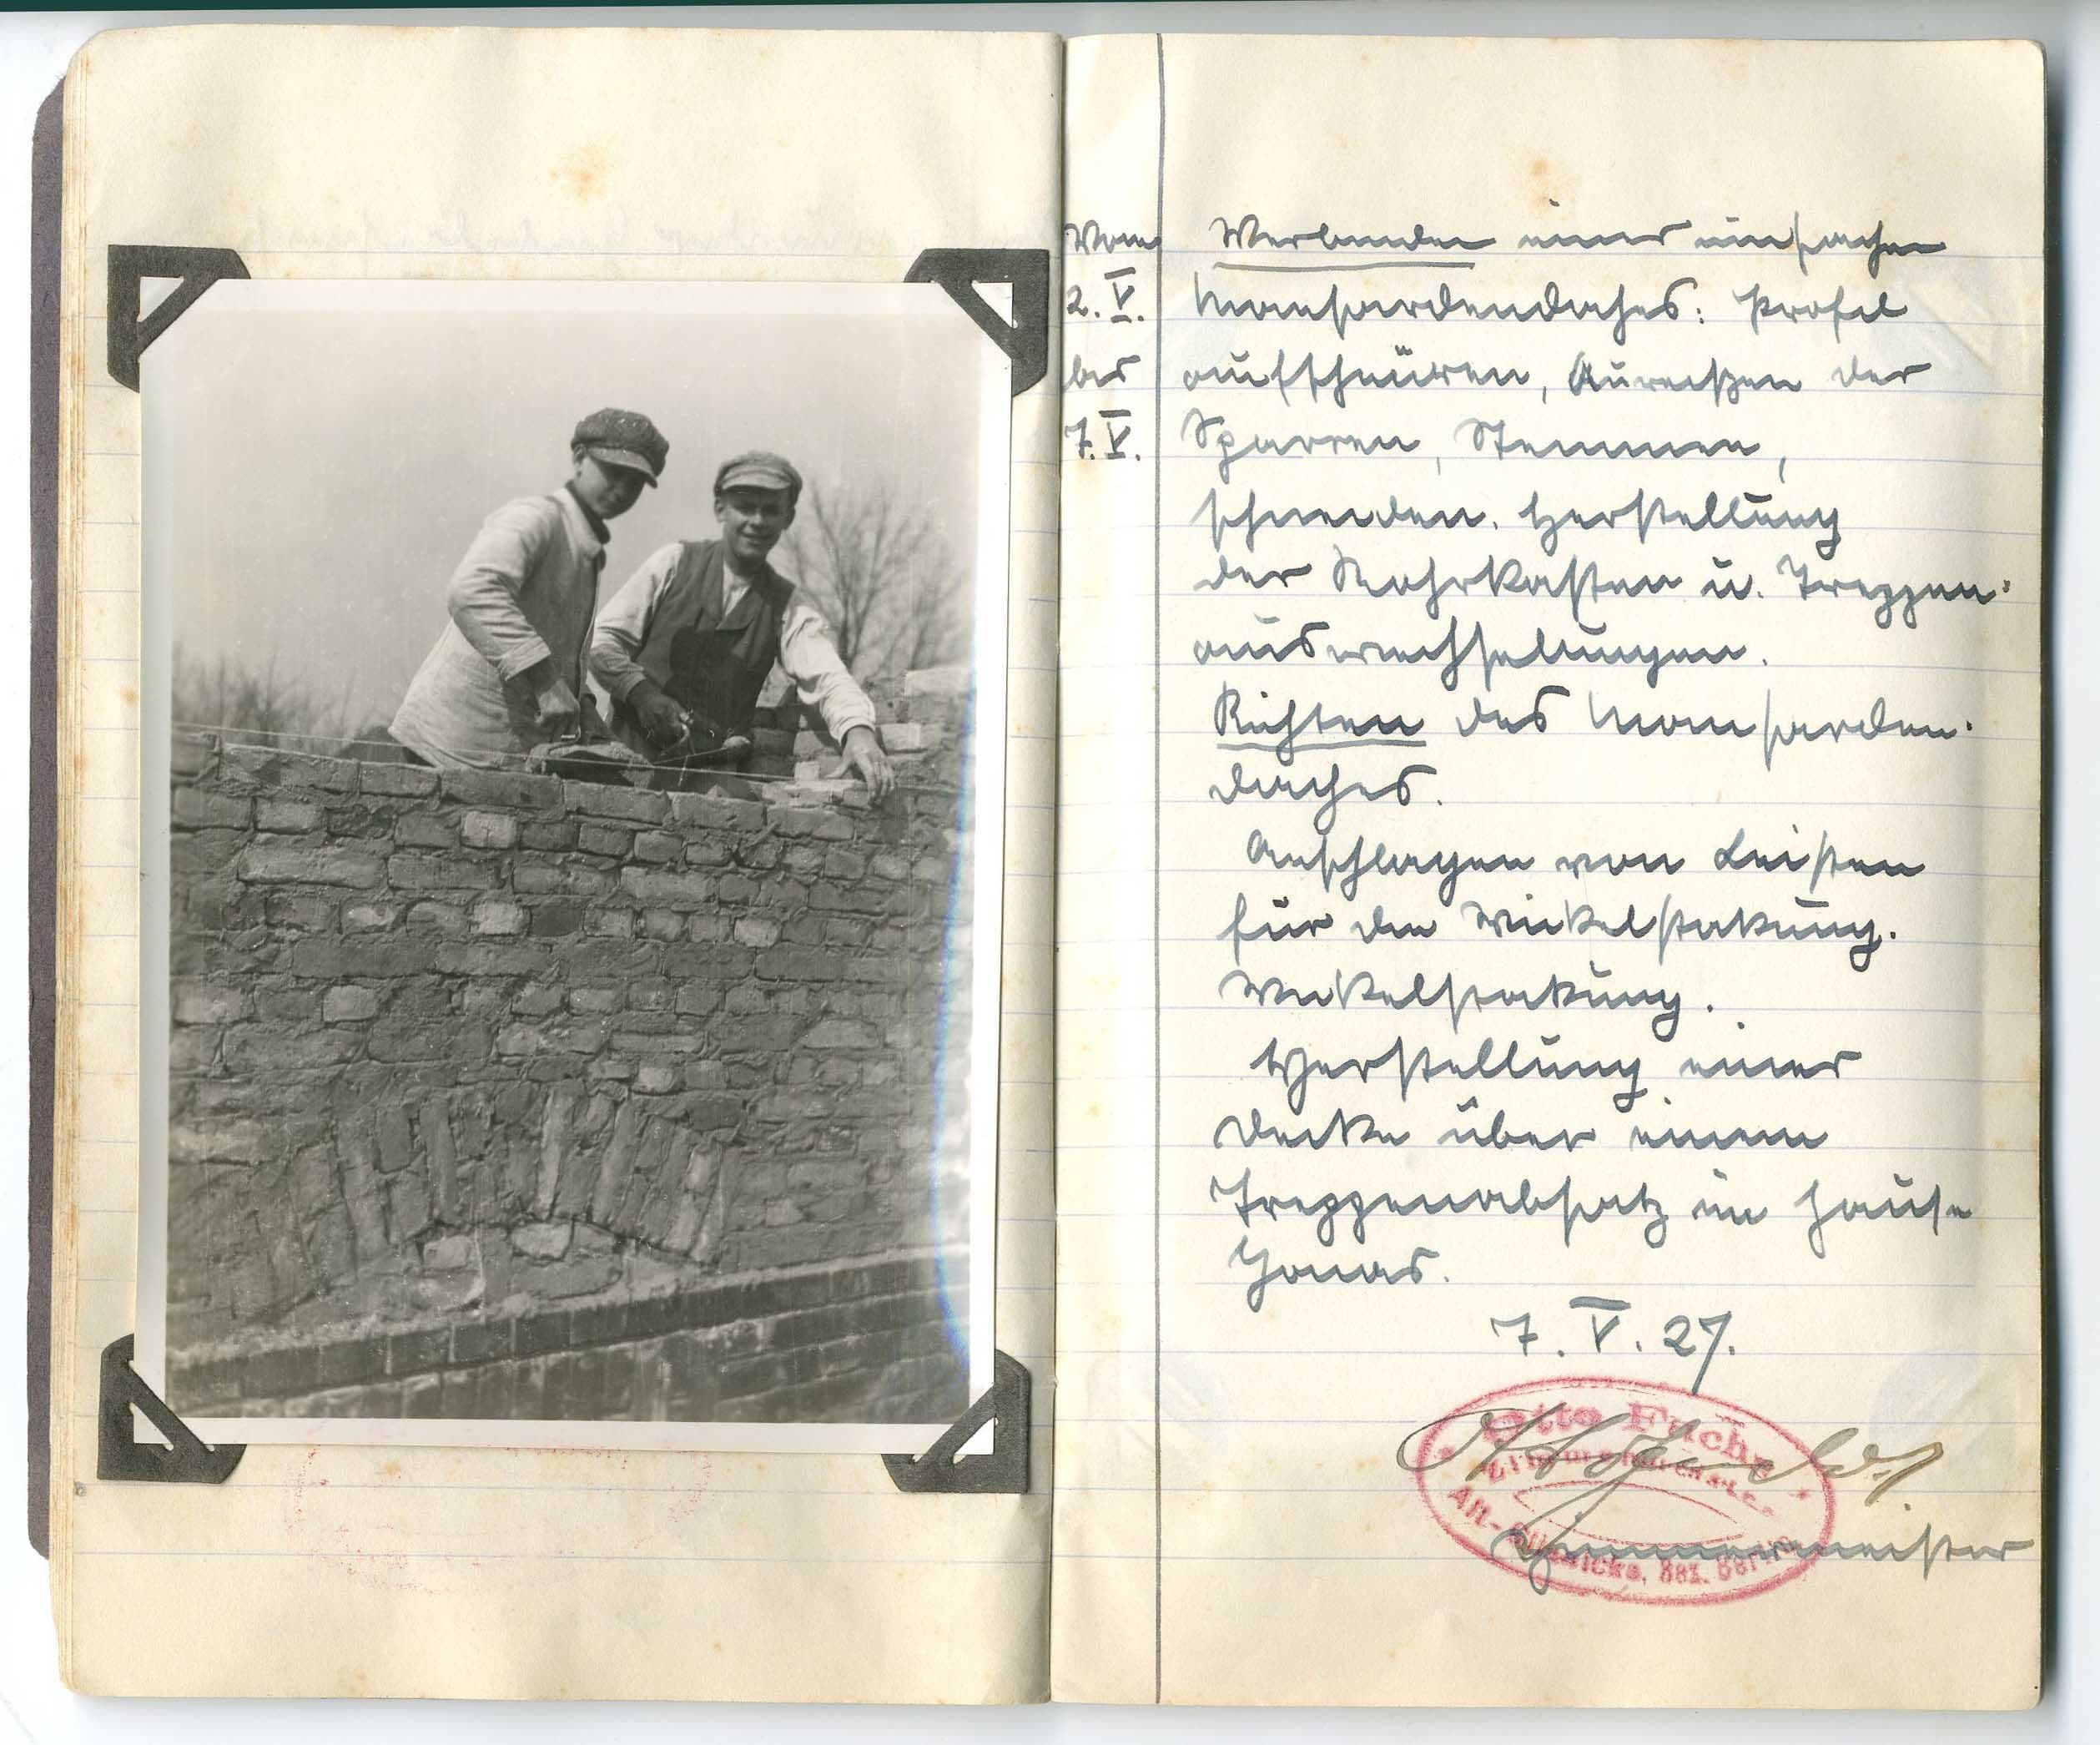 Vom
2. V.
bis
7. V.
Verbinden eines einfachen
Mansardendaches: Profil
aufschnüren, Aureißen der
Sparren, Stemmen,
schneiden. Herstellung
der Rohrkasten u. Treppen-
auswechselungen.
Richten des Mansarden-
daches.
Anschlagen von Leisten
für die Wickelstakung.
Wickelstakung.
Herstellung einer
Decke über einem
Treppenabsatz im Hause
Jonas.
7. V. 27.
Otto Fuchs
Zimmermeister
Alt-Glienicke, Bez. Berlin
Zimmermeister